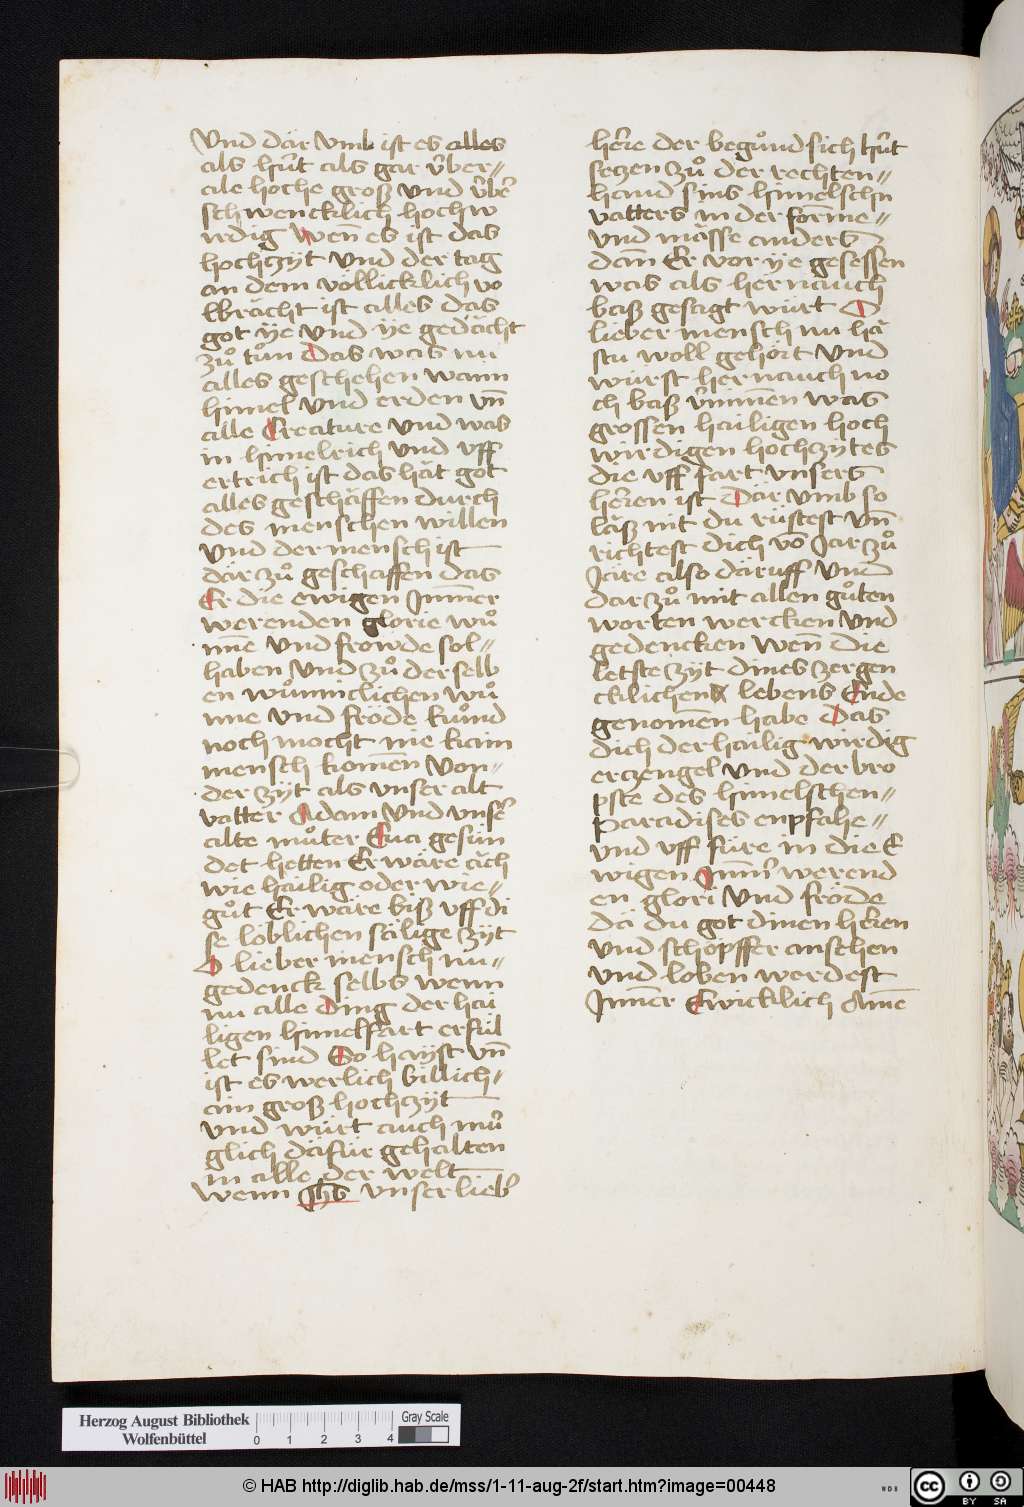 Und där Umb ist es alles
als hu̍t als gar u̍ber=
ale hoche groß Und u̍be᷑
schwencklich hochw
irdig Wen̄ es ist das
hochczÿt Und der tag
an dem völlicklich vo
lbra̍cht ist alles das
got ÿe Und ÿe geda̍cht
zuͦ tuͦn Das was nu
alles geschehen wann
himel Und erden vn̄
alle Creature Und was
in himelrich Und vff
ertrich ist das hät got
alles geschäffen durch
des menschen willen
Und der mensch ist
där zuͦ geschaffen das
Er die ewigen Im̄er
werenden glorie wuͦ
nn̄e Und frowde sol=
haben Und zuͦ der selb
en wuͦnnclichen wuͦ
nne Und fröde kuͦnd
noch mocht nie kaim
mensch komen̄ Von=
der zÿt als vnser alt
vatter Adam Und vnse᷑
alte muͦter Eua gesün
det hetten Er wäre äch
wie hailig oder wie=
guͦt Er wäre biß vff di
se löblichen sälige zÿt
O lieber mensch nu=
gedenck selbs wenn
nu alle Ding der hai
ligen himelfart erfül
let sind So haÿst vn̄
ist es werlich billich
ain groß hochczÿt
Und würt auch mu̍
glich däfür gehalten
in alle der welt
wenn Jhs vnser lieb᷑
he᷑re der beguͦnd sich hu̍t
seczen zuͦ der rechten=
hand sins himelschn
vatters in der form̄e=
Und mässe anders
dan̄ Er vor ÿe gesessen
was als her nauch
baß gesagt würt O
lieber mensch nu hä
stu woll gehört Und
würst her nauch no
ch baß v᷑nimen̄ was
grossen hailigen hoch
wirdigen hochzÿtes
die vff fart vnsers
he᷑ren ist Där vmb so
läß nit du rüstest vn̄
richtest dich vo̅ Jar zuͦ
Järe also däruff Und
dar zuͦ mit allen guͦten
worten wercken Und
gedencken wen̄ die
letste zÿt dines zergen
cklichen lebens Ende
genomen̄ habe Das
dich der hailig wirdig
erczengel Und der bro
pste des himelschen=
Paradises enpfahe=
Und vff füre in die E
wigen Im̄e᷑ werend
en glori Und fröde
dä du got dinen he᷑ren
Und schöpffer ansehen
Und loben werdest
Jm̄er Ewicklich Ame̅
Herzog August Bibliothek
Wolfenbüttel
0 1 2 3 4
Gray Scale
© HAB http://diglib.hab.de/mss/1-11-aug-2f/start.htm?image=00448
WDB
cc
BY SA